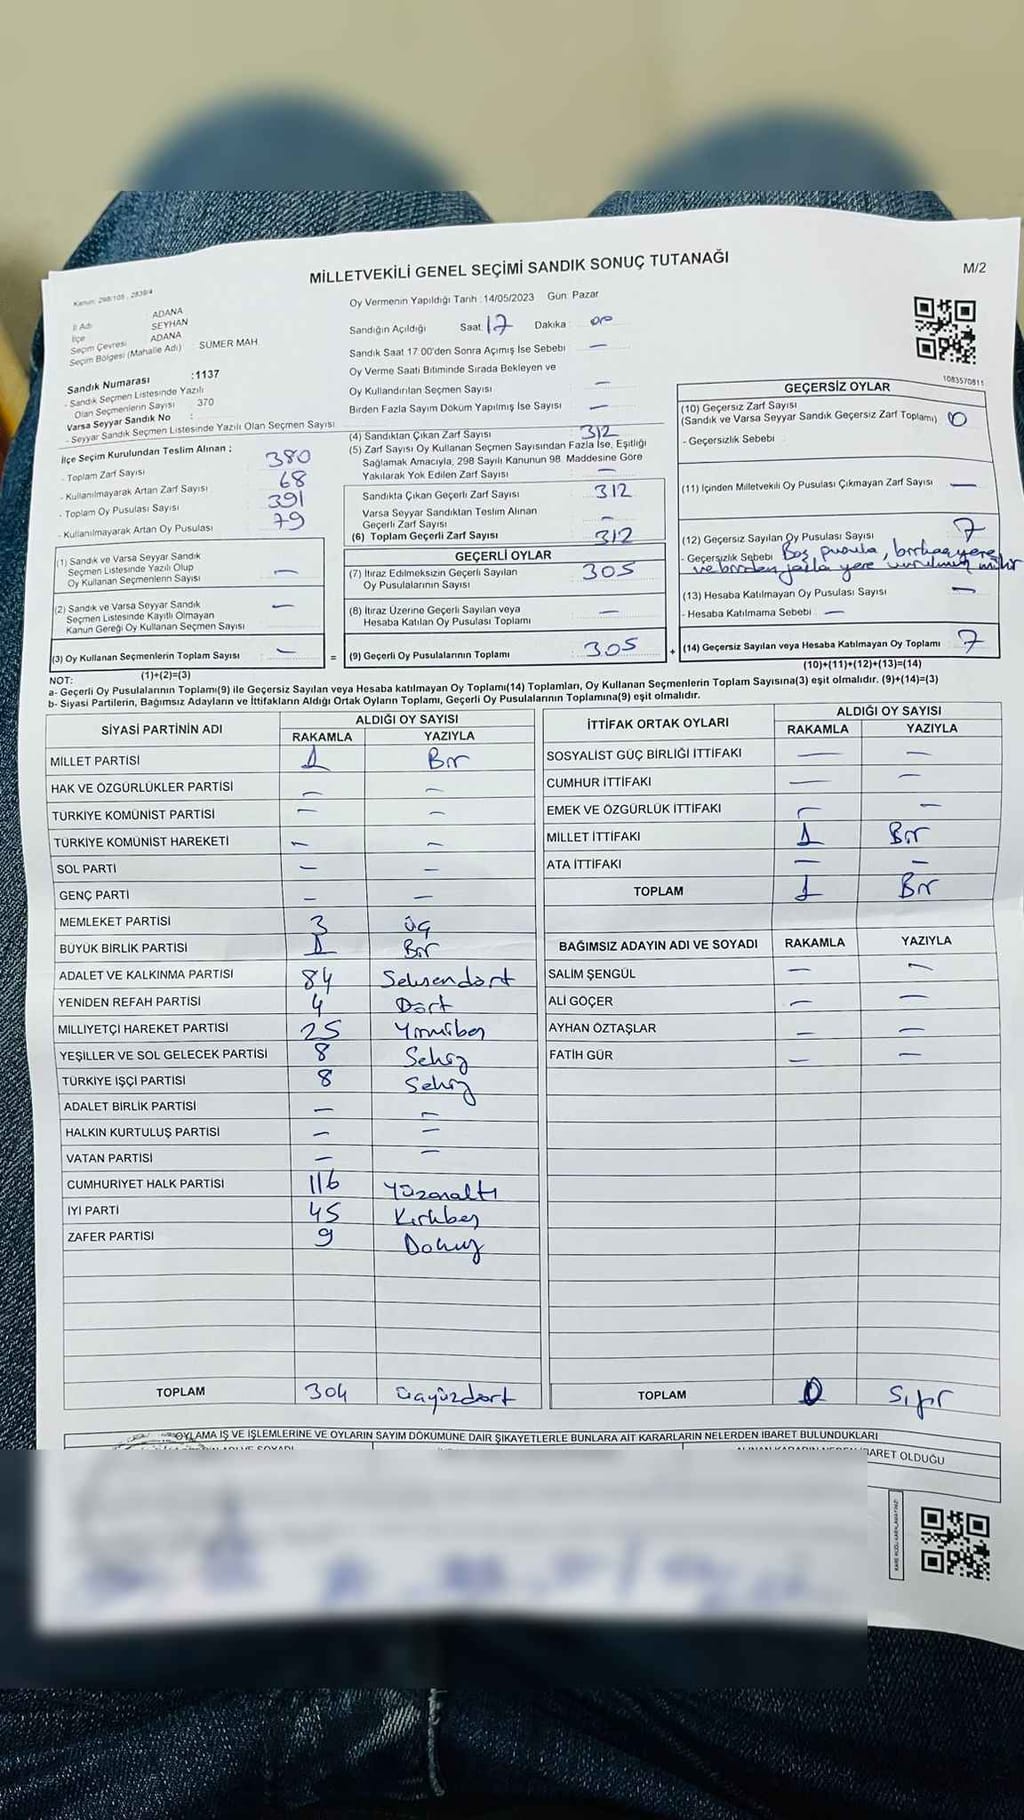 MİLLETVEKİLİ GENEL SEÇİMİ SANDIK SONUÇ TUTANAĞI
M/2
Kanun: 298/105 , 2839/4
İl Adı ADANA
İlçe SEYHAN
Seçim Çevresi ADANA
Seçim Bölgesi (Mahalle Adı) SÜMER MAH.
Sandık Numarası :1137
- Sandık Seçmen Listesinde Yazılı
Olan Seçmenlerin Sayısı 370
Varsa Seyyar Sandık No :
- Seyyar Sandık Seçmen Listesinde Yazılı Olan Seçmen Sayısı
Oy Vermenin Yapıldığı Tarih :14/05/2023 Gün: Pazar
Sandığın Açıldığı Saat 17 Dakika 00
Sandık Saat 17:00'den Sonra Açılmış İse Sebebi —
Oy Verme Saati Bitiminde Sırada Bekleyen ve
Oy Kullandırılan Seçmen Sayısı —
Birden Fazla Sayım Döküm Yapılmış İse Sayısı —
1083570811
İlçe Seçim Kurulundan Teslim Alınan ;
- Toplam Zarf Sayısı 380
- Kullanılmayarak Artan Zarf Sayısı 68
- Toplam Oy Pusulası Sayısı 391
- Kullanılmayarak Artan Oy Pusulası 79
(1) Sandık ve Varsa Seyyar Sandık
Seçmen Listesinde Yazılı Olup
Oy Kullanan Seçmenlerin Sayısı —
(2) Sandık ve Varsa Seyyar Sandık
Seçmen Listesinde Kayıtlı Olmayan
Kanun Gereği Oy Kullanan Seçmen Sayısı —
(3) Oy Kullanan Seçmenlerin Toplam Sayısı —
(1)+(2)=(3)
(4) Sandıktan Çıkan Zarf Sayısı 312
(5) Zarf Sayısı Oy Kullanan Seçmen Sayısından Fazla İse, Eşitliği
Sağlamak Amacıyla, 298 Sayılı Kanunun 98. Maddesine Göre
Yakılarak Yok Edilen Zarf Sayısı —
Sandıkta Çıkan Geçerli Zarf Sayısı 312
Varsa Seyyar Sandıktan Teslim Alınan
Geçerli Zarf Sayısı —
(6) Toplam Geçerli Zarf Sayısı 312
GEÇERLİ OYLAR
(7) İtiraz Edilmeksizin Geçerli Sayılan
Oy Pusulalarının Sayısı 305
(8) İtiraz Üzerine Geçerli Sayılan veya
Hesaba Katılan Oy Pusulası Toplamı —
= (9) Geçerli Oy Pusulalarının Toplamı 305
GEÇERSİZ OYLAR
(10) Geçersiz Zarf Sayısı
(Sandık ve Varsa Seyyar Sandık Geçersiz Zarf Toplamı) 0
- Geçersizlik Sebebi
(11) İçinden Milletvekili Oy Pusulası Çıkmayan Zarf Sayısı —
(12) Geçersiz Sayılan Oy Pusulası Sayısı 7
- Geçersizlik Sebebi Boş pusula,
ve birden fazla yere
(13) Hesaba Katılmayan Oy Pusulası Sayısı —
- Hesaba Katılmama Sebebi —
+ (14) Geçersiz Sayılan veya Hesaba Katılmayan Oy Toplamı 7
(10)+(11)+(12)+(13)=(14)
NOT:
a- Geçerli Oy Pusulalarının Toplamı(9) ile Geçersiz Sayılan veya Hesaba katılmayan Oy Toplamı(14) Toplamları, Oy Kullanan Seçmenlerin Toplam Sayısına(3) eşit olmalıdır. (9)+(14)=(3)
b- Siyasi Partilerin, Bağımsız Adayların ve İttifakların Aldığı Ortak Oyların Toplamı, Geçerli Oy Pusulalarının Toplamına(9) eşit olmalıdır.
SİYASİ PARTİNİN ADI ALDIĞI OY SAYISI
RAKAMLA YAZIYLA
MİLLET PARTİSİ 1 Bir
HAK VE ÖZGÜRLÜKLER PARTİSİ — —
TÜRKİYE KOMÜNİST PARTİSİ — —
TÜRKİYE KOMÜNİST HAREKETİ — —
SOL PARTİ — —
GENÇ PARTİ — —
MEMLEKET PARTİSİ 3 üç
BÜYÜK BİRLİK PARTİSİ 1 Bir
ADALET VE KALKINMA PARTİSİ 84 Seksendört
YENİDEN REFAH PARTİSİ 4 Dört
MİLLİYETÇİ HAREKET PARTİSİ 25 Yirmibeş
YEŞİLLER VE SOL GELECEK PARTİSİ 8 Sekiz
TÜRKİYE İŞÇİ PARTİSİ 8 Sekiz
ADALET BİRLİK PARTİSİ — —
HALKIN KURTULUŞ PARTİSİ — —
VATAN PARTİSİ — —
CUMHURİYET HALK PARTİSİ 116 Yüzonaltı
İYİ PARTİ 45 Kırkbeş
ZAFER PARTİSİ 9 Dokuz
TOPLAM 304 üçyüzdört
İTTİFAK ORTAK OYLARI ALDIĞI OY SAYISI
RAKAMLA YAZIYLA
SOSYALİST GÜÇ BİRLİĞİ İTTİFAKI — —
CUMHUR İTTİFAKI — —
EMEK VE ÖZGÜRLÜK İTTİFAKI — —
MİLLET İTTİFAKI 1 Bir
ATA İTTİFAKI — —
TOPLAM 1 Bir
BAĞIMSIZ ADAYIN ADI VE SOYADI RAKAMLA YAZIYLA
SALİM ŞENGÜL — —
ALİ GÖÇER — —
AYHAN ÖZTAŞLAR — —
FATİH GÜR — —
TOPLAM 0 Sıfır
OYLAMA İŞ VE İŞLEMLERİNE VE OYLARIN SAYIM DÖKÜMÜNE DAİR ŞİKAYETLERLE BUNLARA AİT KARARLARIN NELERDEN İBARET BULUNDUKLARI
İBARET OLDUĞU